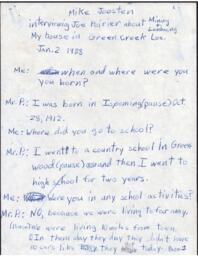 Mike Joosten
interviewing Joe Poirier about Mining
& Lumbering
My house in Green Creek Loc.
Jan. 2 1988
Me: when and where were you
you born?
Mr. P: I was born in Ispaming (pause) Oct.
28, 1912.
Me: Where did you go to school?
Mr. P: I went to a country school in Green
wood (pause) and then I went to
high school for two years.
Me: Were you in any school activities?
Mr. P: No, because we were living to far away.
we were living 10 miles from town.
In them day they day they didn't have
cars like they today.